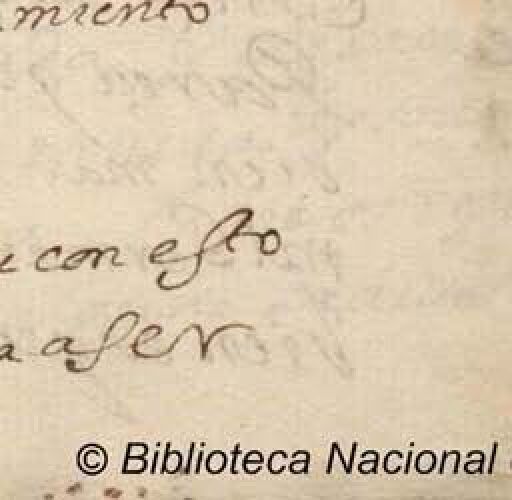 miento
con esto
a aser
© Biblioteca Nacional